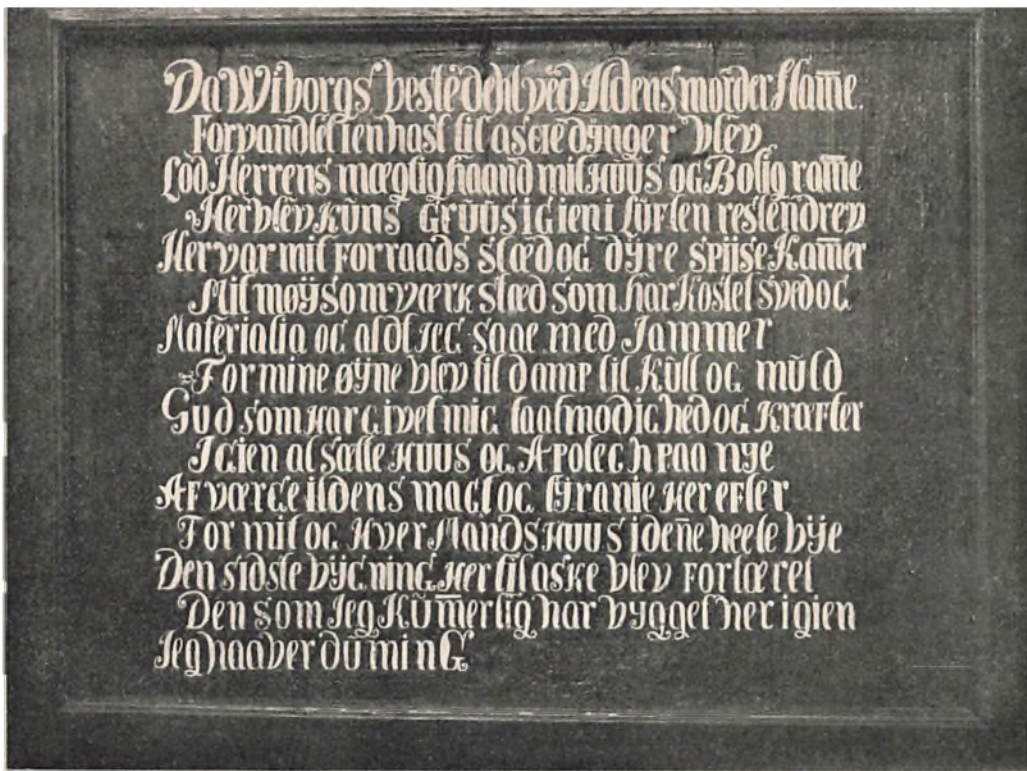 Da Wiborgs beste dehl ved Ildens morder flam̅e.
Forvandlet i en hast til aske dÿnger blev
Lod Herrens mægtig haand mit Huus og Bolig ram̅e
Her blev kŭns Grŭŭs igien i lŭften resten drev
Her var mit Forraads stæd og dÿre spiise Kam̅er
Mit møÿsom værk stæd som har kostet sved og
Materialia og aldt jeg saae med Jammer
For mine øÿne blev til damp til Kŭll og mŭld
Gud som har givet mig taalmodighed og Kræfter
Igien at sætte Huus og Apotech paa nye
Afværge ildens magt og tÿranie her efter
For mit og hver Mands Huus i den̅e heele bÿe
Den sidste bÿgning her til aske blev fortæret
Den som Jeg Kŭm̅erlig har bygget her igien
Jeg haaber dŭ min G